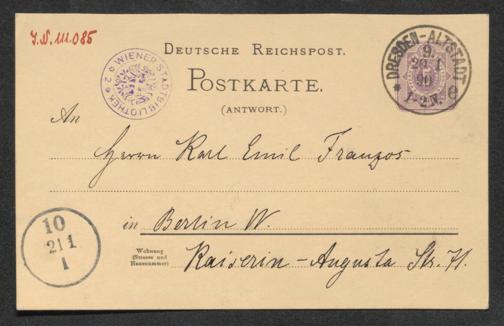 I.N. 111.085
DEUTSCHE REICHSPOST.
POSTKARTE.
(ANTWORT.)
WIENER STADTBIBLIOTHEK
DRESDEN-ALTSTADT
9.
20 1
90
1-2N.
An
Herrn Karl Emil Franzos
in Berlin W.
Wohnung
(Strasse und
Hausnummer)
Kaiserin-Augusta Str. 71.
10
21 1
1